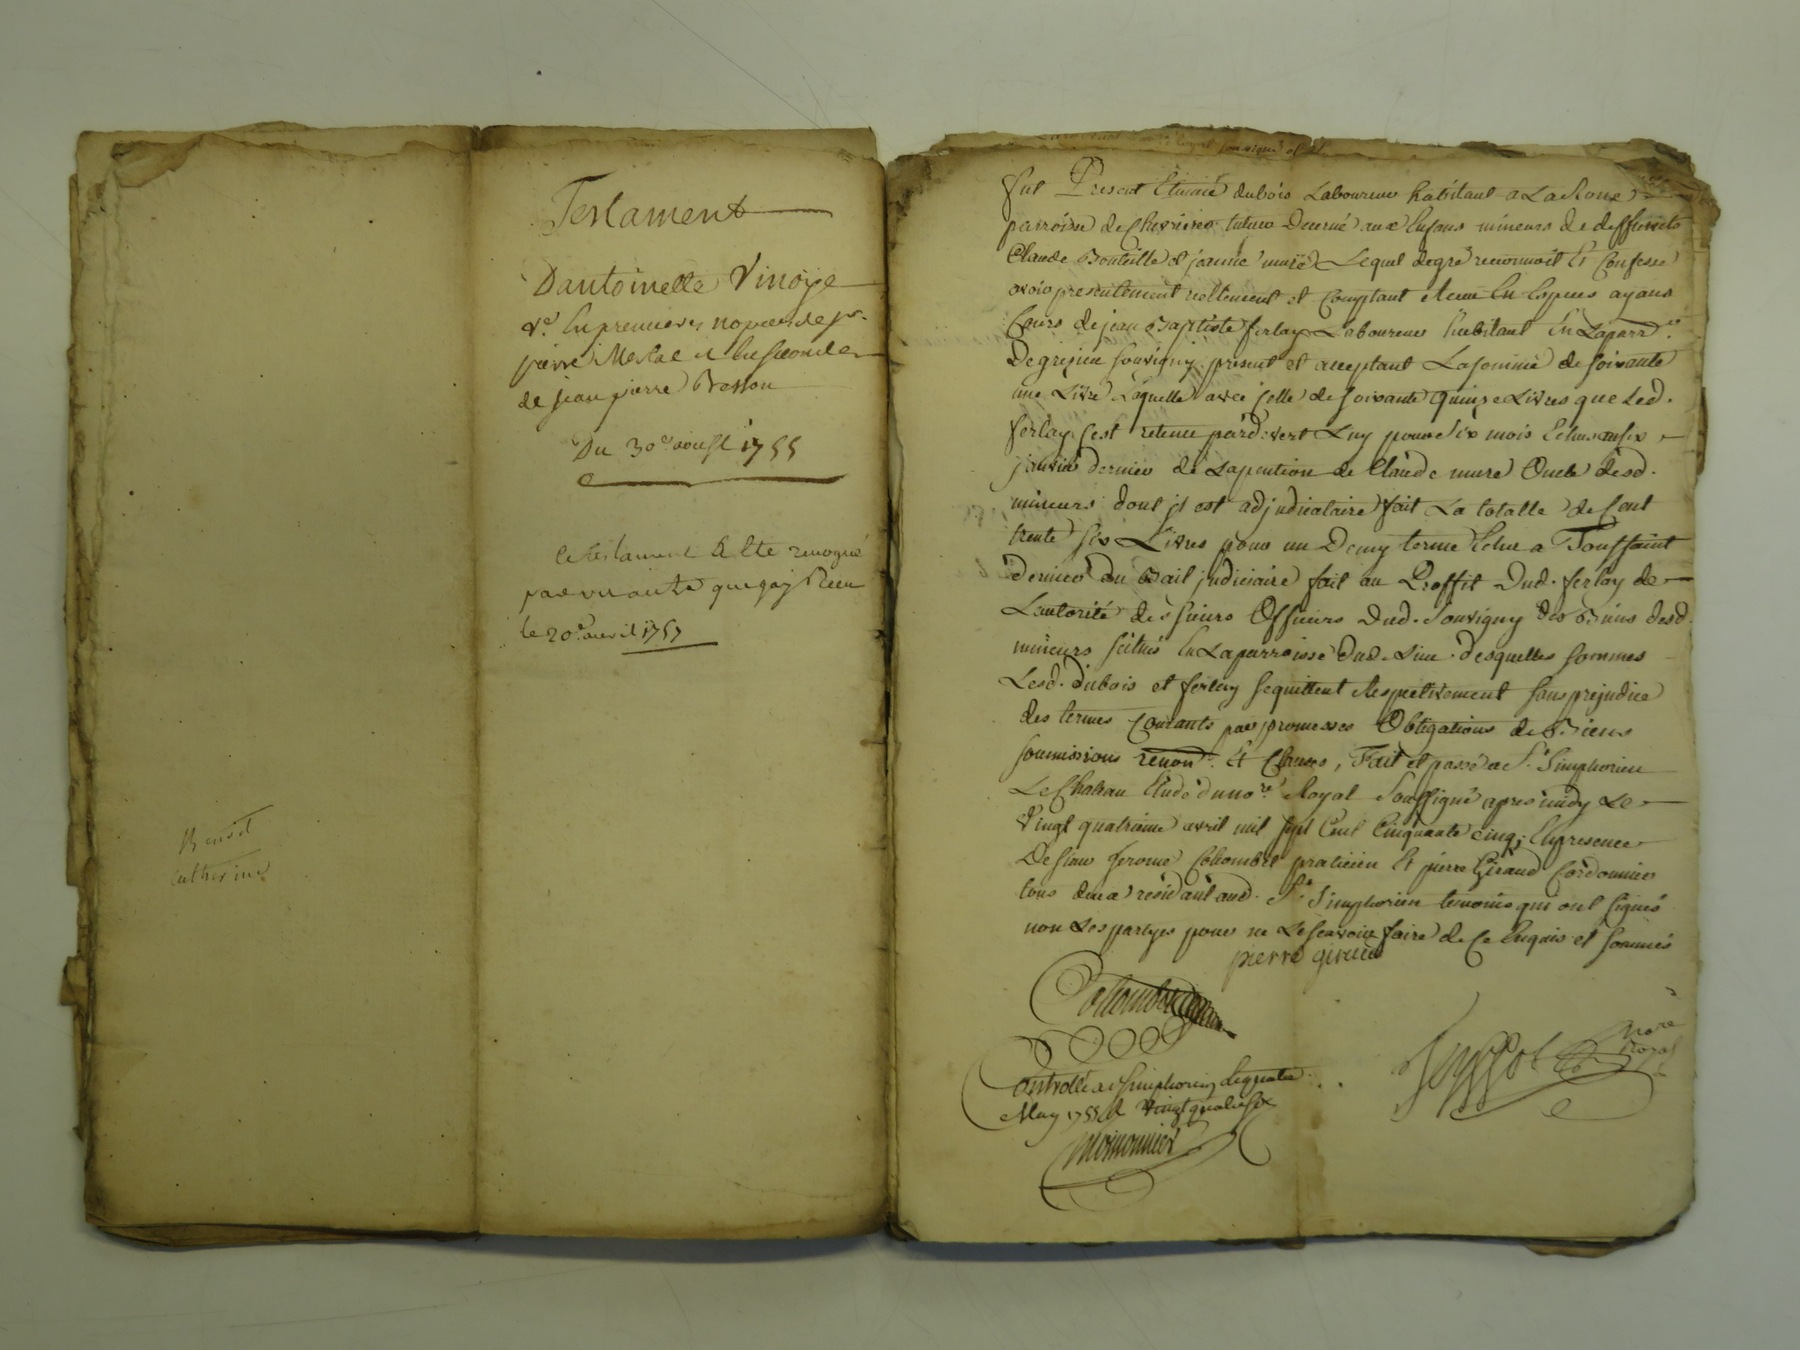 Testament
Dantoinette Vinoÿe
ve. En premieres nopces de sr.
pierre Merlat et En secondes
de jean pierre Besson
Du 30e. aoust 1755
Ce testament a Ete revoqué
par un autre que jay Receu
le 20e. avril 1757
Benoit
Catherine
fut Present Etienne dubois Laboureur habitant a La
parroisse de Chevrieres tuteur Decerné aux Enfans mineurs de deffunts
Claude Bouteille et jeanne mure Lequel degré reconnoit Et Confesse
avoir presentement reellement et Comptant Receu En Especes ayans
Cours de jean Baptiste ferlay Laboureur habitant En Laparr.se
De grezieu Souvigny present et acceptant La somme de soixante
une Livre Laquelle avec Celle de soixante quinze Livres que Led.
ferlay sest retenu pardevert Luy pour six mois Echus au six
janvier dernier de Lapention de Claude mure Oncle desd.
mineurs dont jl est adjudicataire fait La totalle de Cent
trente six Livres pour un Demy terme Echu a Toussaint
dernier du Bail judiciaire fait au Proffit Dud. ferlay de
Lautorité des sieurs Officiers Dud. Souvigny des Biens desd.
mineurs scitués En Laparroisse Dud. Lieu. desquelles sommes
Lesd. dubois et ferlay sequittent Respectivement sans prejudice
des termes Courants par promesses Obligations de Biens
soumissions renon.s Et Clauses, Fait et passé a St. Simphorien
Le Chateau Etude du no.re Royal Soussigné apres midy Le
Vingt quatrieme avril mil sept Cent Cinquante cinq; En presence
De sieur jerome Collombet praticien Et pierre Giraud Cordonnier
tous deux residant aud. St. Simphorien temoins qui ont signés
non Les partyes pour ne Le scavoir faire de Ce Enquis et sommés
pierre giraud
Collombet
no.re
Royal
Controllé a St Simphorien Le quatre
May 1755